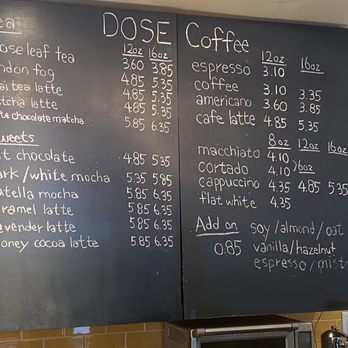 DOSE Coffee
12oz 16oz
loose leaf tea
London fog 3.60 3.85
tea latte 4.85 5.35
matcha latte 4.85 5.35
white chocolate matcha 5.85 6.35
sweets
hot chocolate 4.85 5.35
dark/white mocha 5.35 5.85
nutella mocha 5.85 6.35
caramel latte 5.85 6.35
lavender latte 5.85 6.35
honey cocoa latte 5.85 6.35
12oz 16oz
espresso 3.10
coffee 3.10 3.35
americano 3.60 3.85
cafe latte 4.85 5.35
8oz 12oz 16oz
macchiato 4.10
cortado 4.10
cappuccino 4.35 4.85 5.35
flat white 4.35
Add on soy/almond/oat
0.85 vanilla/hazelnut
espresso/